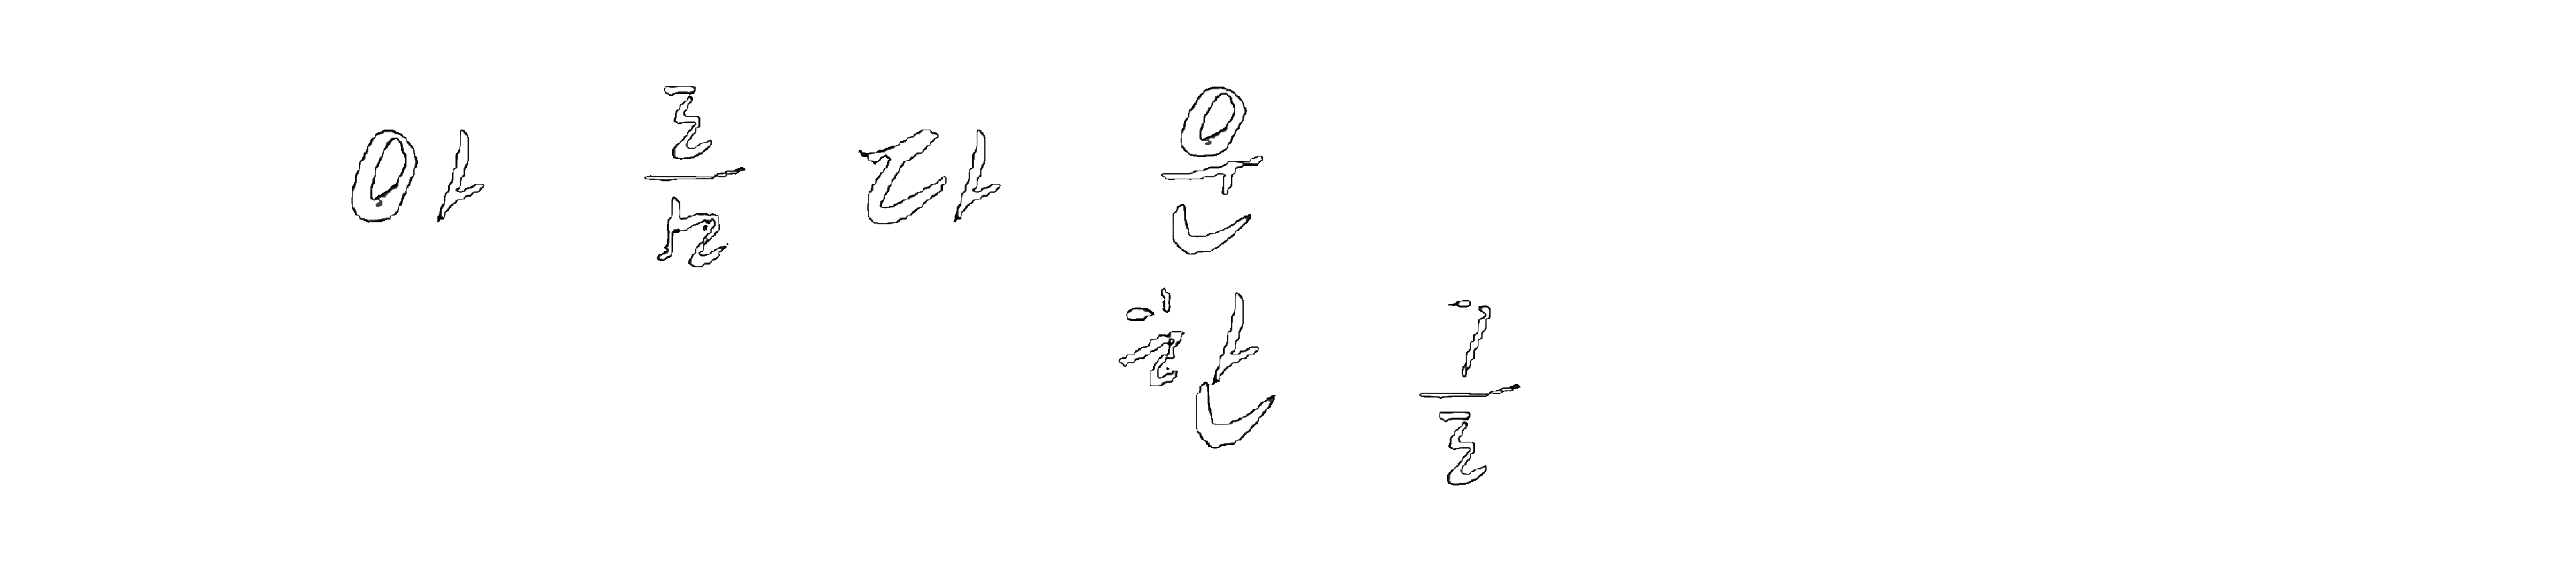 아 름 다 운
한 글